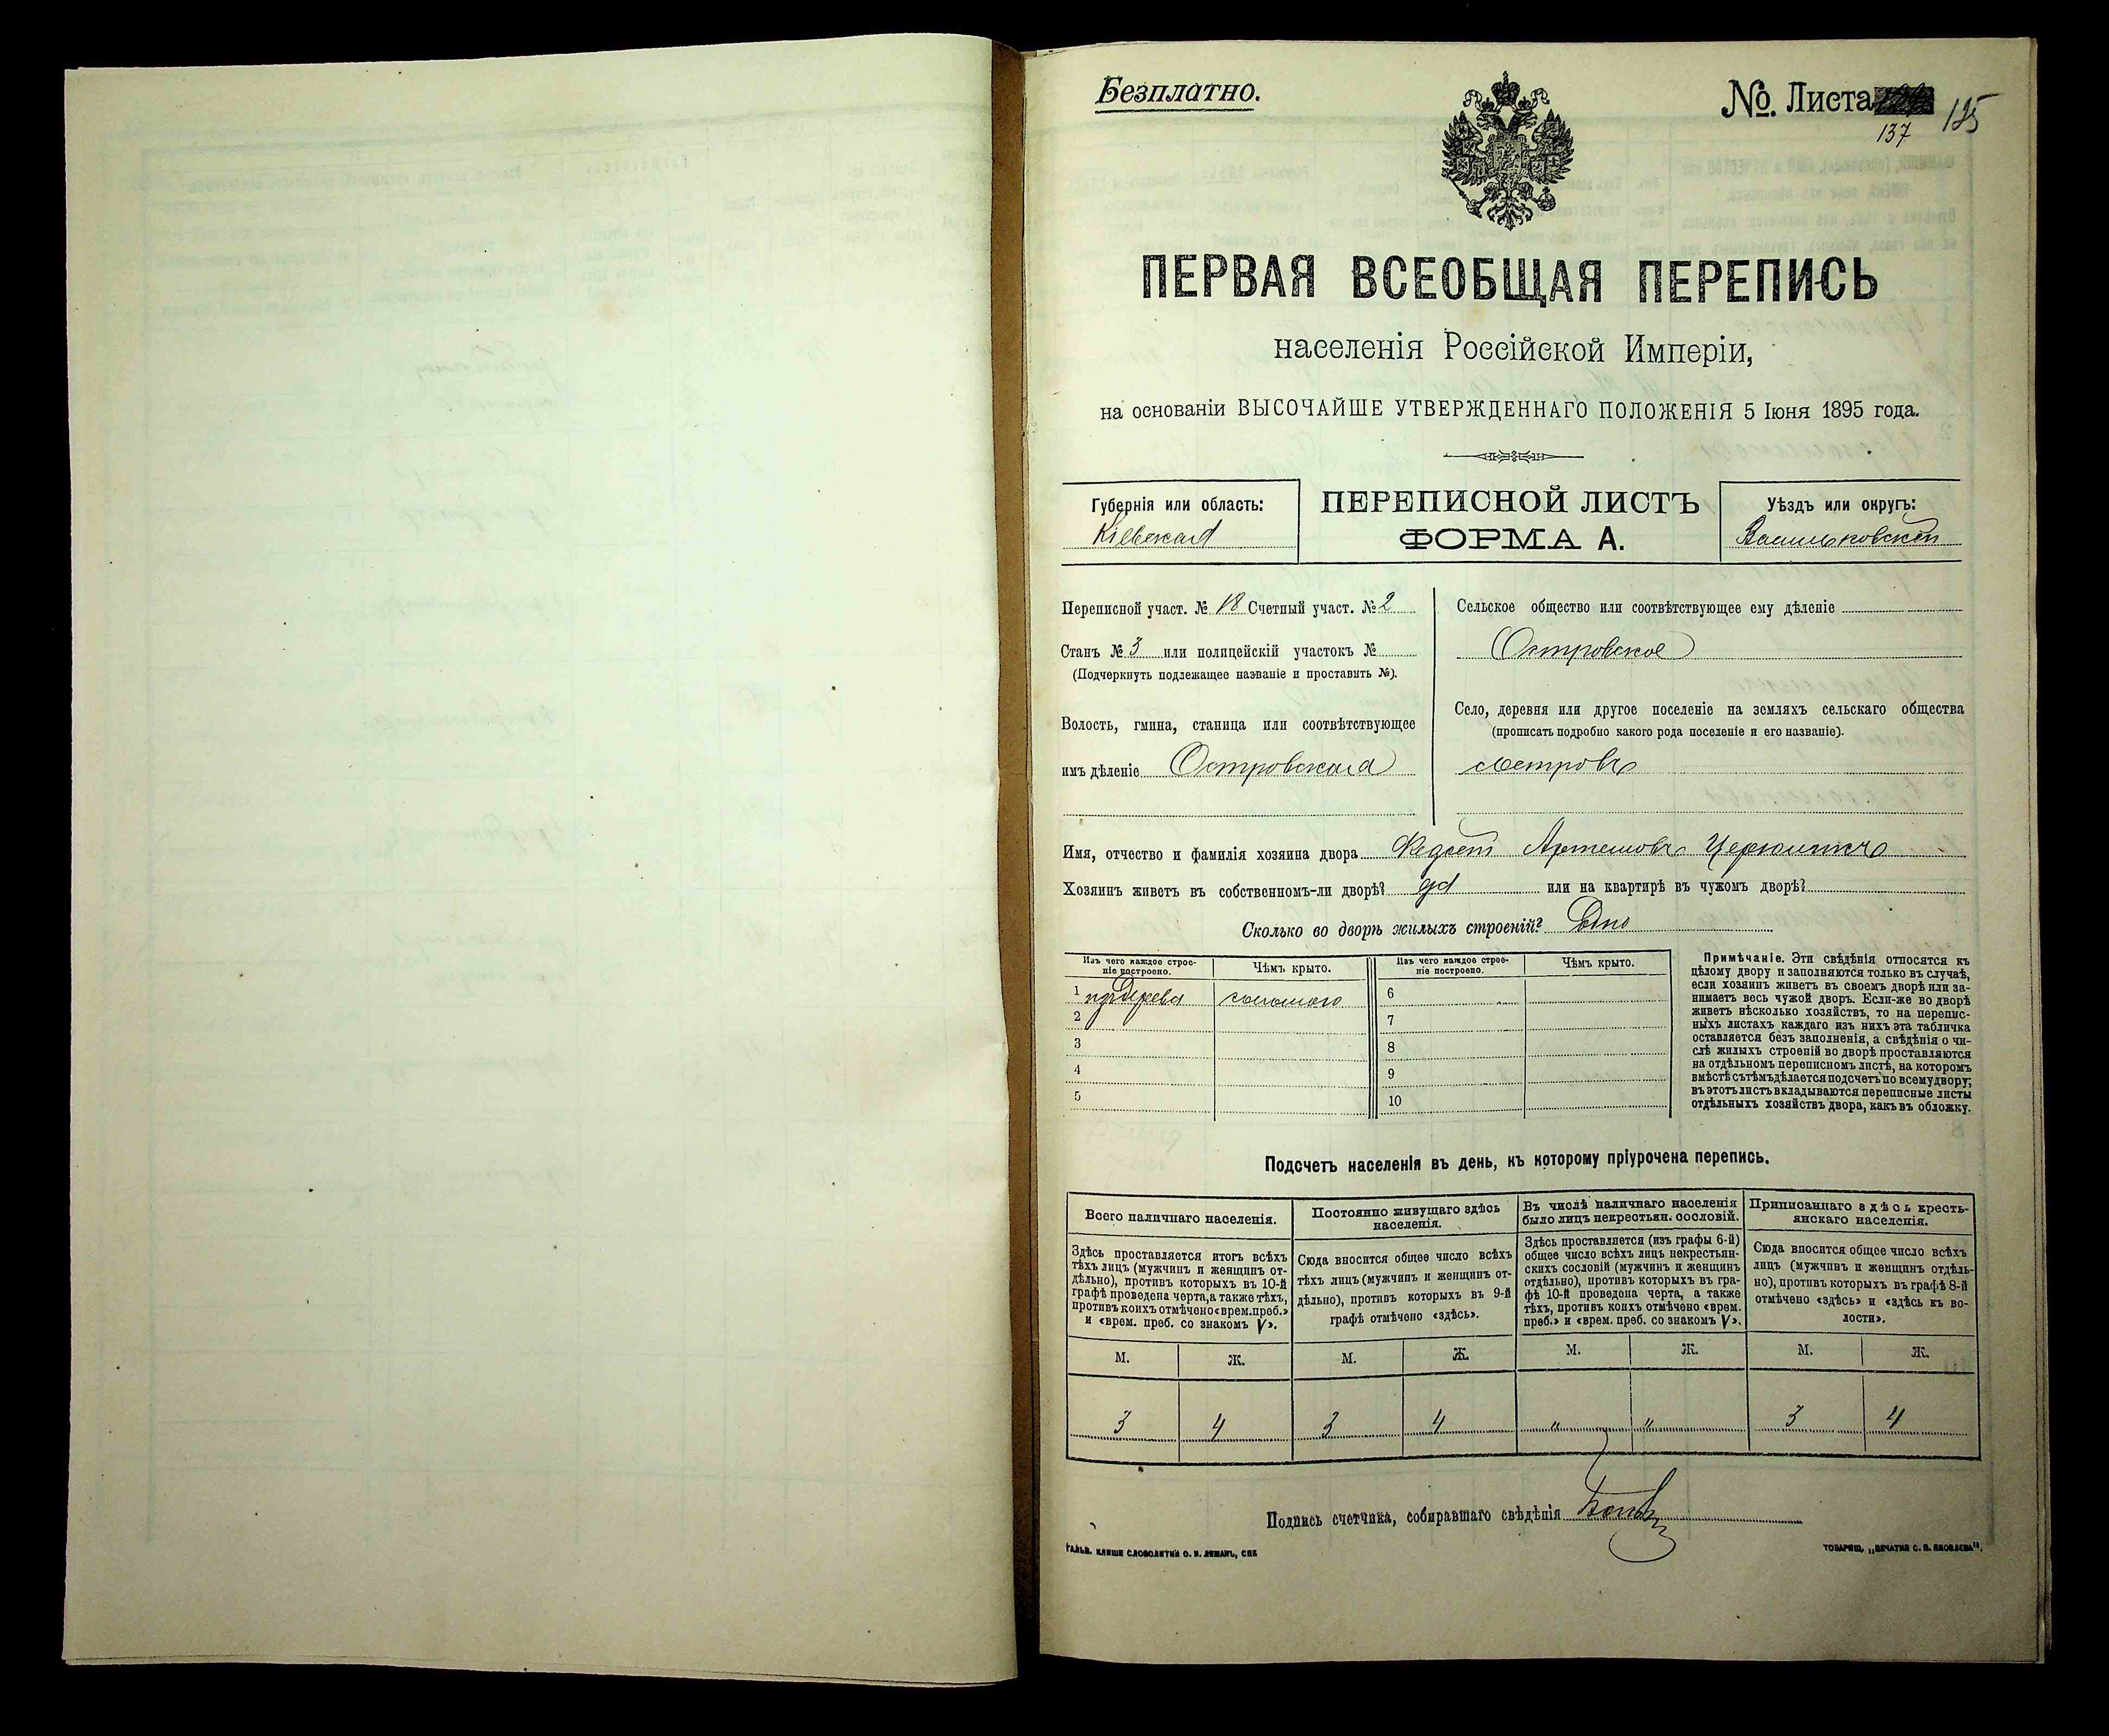 Безплатно.
№. Листа 135
137
ПЕРВАЯ ВСЕОБЩАЯ ПЕРЕПИСЬ
населенія Россійской Имперіи,
на основаніи ВЫСОЧАЙШЕ УТВЕРЖДЕННАГО ПОЛОЖЕНІЯ 5 Іюня 1895 года.
Губернія или область:
Кіевская
ПЕРЕПИСНОЙ ЛИСТЪ
ФОРМА А.
Уѣздъ или округъ:
Васильковскій
Переписной участ. № 18 Счетный участ. № 2
Станъ № 3 или полицейскій участокъ №
(Подчеркнуть подлежащее названіе и проставить №).
Волость, гмина, станица или соотвѣтствующее
имъ дѣленіе Островская
Сельское общество или соотвѣтствующее ему дѣленіе
Островское
Село, деревня или другое поселеніе на земляхъ сельскаго общества
(прописать подробно какого рода поселеніе и его названіе).
с Островъ
Имя, отчество и фамилія хозяина двора Федосій Артемовъ
Хозяинъ живетъ въ собственномъ-ли дворѣ? да или на квартирѣ въ чужомъ дворѣ?
Сколько во дворѣ жилыхъ строеній? Одно
Изъ чего каждое строе-
ніе построено.
Чѣмъ крыто.
Изъ чего каждое строе-
ніе построено.
Чѣмъ крыто.
1 изъ дерева соломою
2
3
4
5
6
7
8
9
10
Примѣчаніе. Эти свѣдѣнія относятся къ
цѣлому двору и заполняются только въ случаѣ,
если хозяинъ живетъ въ своемъ дворѣ или за-
нимаетъ весь чужой дворъ. Если-же во дворѣ
живетъ нѣсколько хозяйствъ, то на перепис-
ныхъ листахъ каждаго изъ нихъ эта табличка
оставляется безъ заполненія, а свѣдѣнія о чи-
слѣ жилыхъ строеній во дворѣ проставляются
на отдѣльномъ переписномъ листѣ, на которомъ
вмѣстѣ съ тѣмъ дѣлается подсчетъ по всему двору;
въ этотъ листъ вкладываются переписные листы
отдѣльныхъ хозяйствъ двора, какъ въ обложку.
Подсчетъ населенія въ день, къ которому пріурочена перепись.
Всего наличнаго населенія.
Постоянно живущаго здѣсь
населенія.
Въ числѣ наличнаго населенія
было лицъ некрестьян. сословій.
Приписаннаго здѣсь кресть-
янскаго населенія.
Здѣсь проставляется итогъ всѣхъ
тѣхъ лицъ (мужчинъ и женщинъ от-
дѣльно), противъ которыхъ въ 10-й
графѣ проведена черта, а также тѣхъ,
противъ коихъ отмѣчено «врем. преб.»
и «врем. преб. со знакомъ V».
Сюда вносится общее число всѣхъ
тѣхъ лицъ (мужчинъ и женщинъ от-
дѣльно), противъ которыхъ въ 9-й
графѣ отмѣчено «здѣсь».
Здѣсь проставляется (изъ графы 6-й)
общее число всѣхъ лицъ некрестьян-
скихъ сословій (мужчинъ и женщинъ
отдѣльно), противъ которыхъ въ гра-
фѣ 10-й проведена черта, а также
тѣхъ, противъ коихъ отмѣчено «врем.
преб.» и «врем. преб. со знакомъ V».
Сюда вносится общее число всѣхъ
лицъ (мужчинъ и женщинъ отдѣль-
но), противъ которыхъ въ графѣ 8-й
отмѣчено «здѣсь» и «здѣсь къ во-
лости».
М. Ж. М. Ж. М. Ж. М. Ж.
3 4 3 4 " " 3 4
Подпись счетчика, собиравшаго свѣдѣнія
ГАЛЬВ. КЛИШЕ СЛОВОЛИТНИ О. И. ЛЕМАНЪ, СПБ
ТОВАРИЩ. „ПЕЧАТНЯ С. П. ЯКОВЛЕВА".